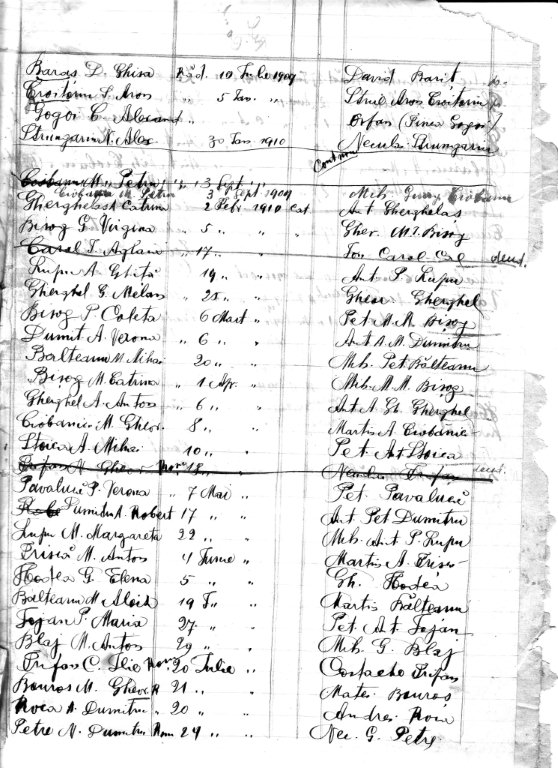 Baraș D. Ghisa Răd. 10 Iulie 1909 David Barit
Croitoru S. Aron " 5 Ian. " Strul Aron Croitoriu
Gogoi C. Alexand " " Orfan (Pinea Gogoi)
Strungariu N. Alex 30 Ian 1910 Neculai Strungariu
Ciobanu M. Petru " 3 Sept "
Ciobanu M. Petru 3 Sept 1909 Mih. Ciobanu
Gherghelaș Catrina 2 Feb. 1910 Cat. Ant Gherghelas
Bișog G. Virgina " 5 " " Gher. M. I. Bisog
Caral I. Aglaia " 17 " Ion Caral
Lupu A. Ghiță 19 " " Ant P. Lupu
Gherghel G. Melan " 25 " " Gheor Gherghel
Bișog P. Cofeta " 6 Mart " Pet M. M. Bișog
Dumit A. Verona " 6 " " Ant A. M. Dumitru
Balteanu M. Mihai 20 " " Mih. Pet Bălteanu
Bișog M. Catrina " 1 Apr. " Mih. M. M. Bișog
Gherghel A. Anton " 6 " " Ant A. Gh. Gherghel
Ciobanu M. Gheor " 8 " " Martin A. Ciobanu
Stoica A. Mihai 10 " " Pet Ant Stoica
Trifan N. Gheor 18 " Neculai Trifan
Pavaluciî P. Verona " 7 Mai " Pet. Pavaluciî
Dumitru A. Robert 17 " " Ant Pet Dumitru
Lupu M. Margareta 22 " " Mih. Ant P. Lupu
M. Anton " 4 Iunie " Martin A.
Hodea G. Elena " 5 " " Gh. Hodea
Balteanu M. Aloisă 19 " " Martin Bălteanu
Fojan P. Maria " 27 " " Pet Ant. Fojan
Blaj M. Anton " 29 " " Mih. G. Blaj
Trifan C. Ilie 20 Iulie " Costache Trifan
Bouroș M. Gheor 21 " " Matei Bouroș
A. Dumitru " 20 " " Andrei
Petre N. Dumitru Rom 24 " " Nec. G. Petre